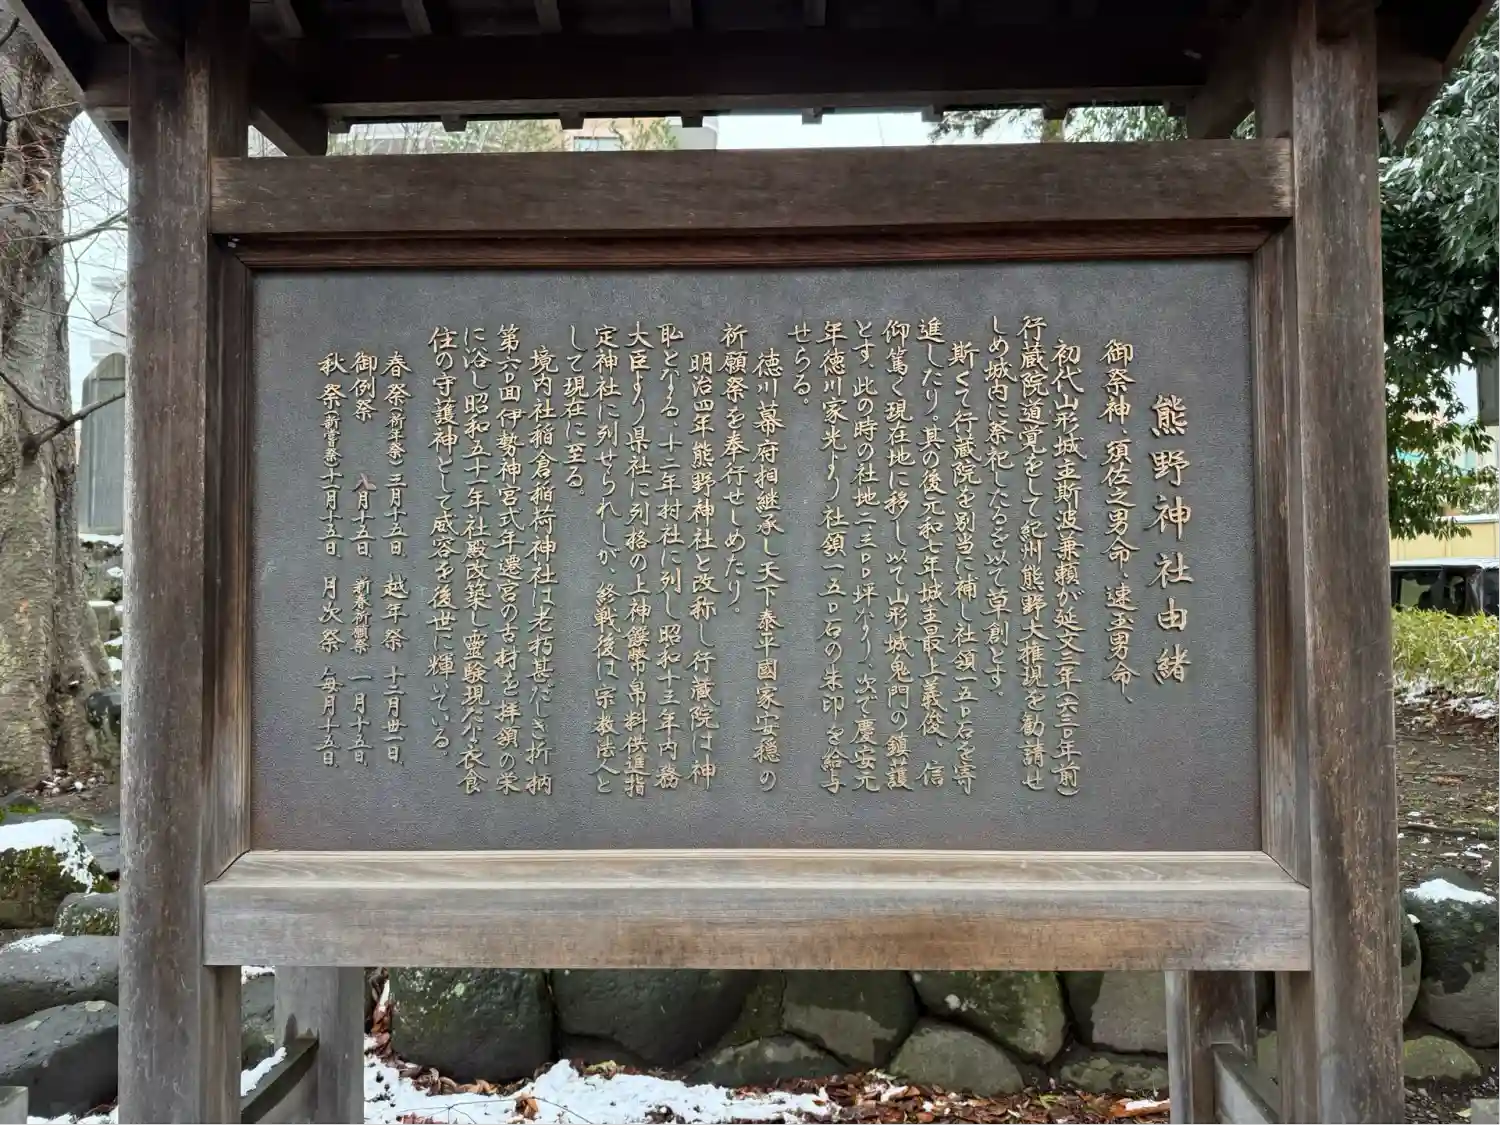 熊野神社由緒
御祭神、須佐之男命、速玉男命、
初代山形城主斯波兼頼が延文三年(六三〇年前)
行蔵院道覚をして紀州熊野大権現を勧請せ
しめ城内に祭祀したるを以て草創とす。
斯くて行蔵院を別当に補し社領一五〇石を寄
進したり。其の後元和七年城主最上義俊、信
仰篤く現在地に移し以て山形城鬼門の鎮護
とす。此の時の社地二、三〇〇坪なり、次で慶安元
年徳川家光より社領一五〇石の朱印を給与
せらる。
徳川幕府相継承し天下泰平國家安穏の
祈願祭を奉行せしめたり。
明治四年熊野神社と改称し行蔵院は神
職となる、十二年村社に列し昭和十三年内務
大臣より県社に列格の上神饌幣帛料供進指
定神社に列せられしが、終戦後は宗教法人と
して現在に至る。
境内社稲倉稲荷神社は老朽甚だしき折柄
第六〇回伊勢神宮式年遷宮の古材を拝領の栄
に浴し昭和五十一年社殿改築し霊験現たか衣食
住の守護神として威容を後世に輝いている。
春祭(祈年祭)三月十五日 越年祭 十二月卅一日、
御例祭 八月十五日、新春祈願祭 一月十五日、
秋祭(新嘗祭)十一月十五日、月次祭 毎月十五日、